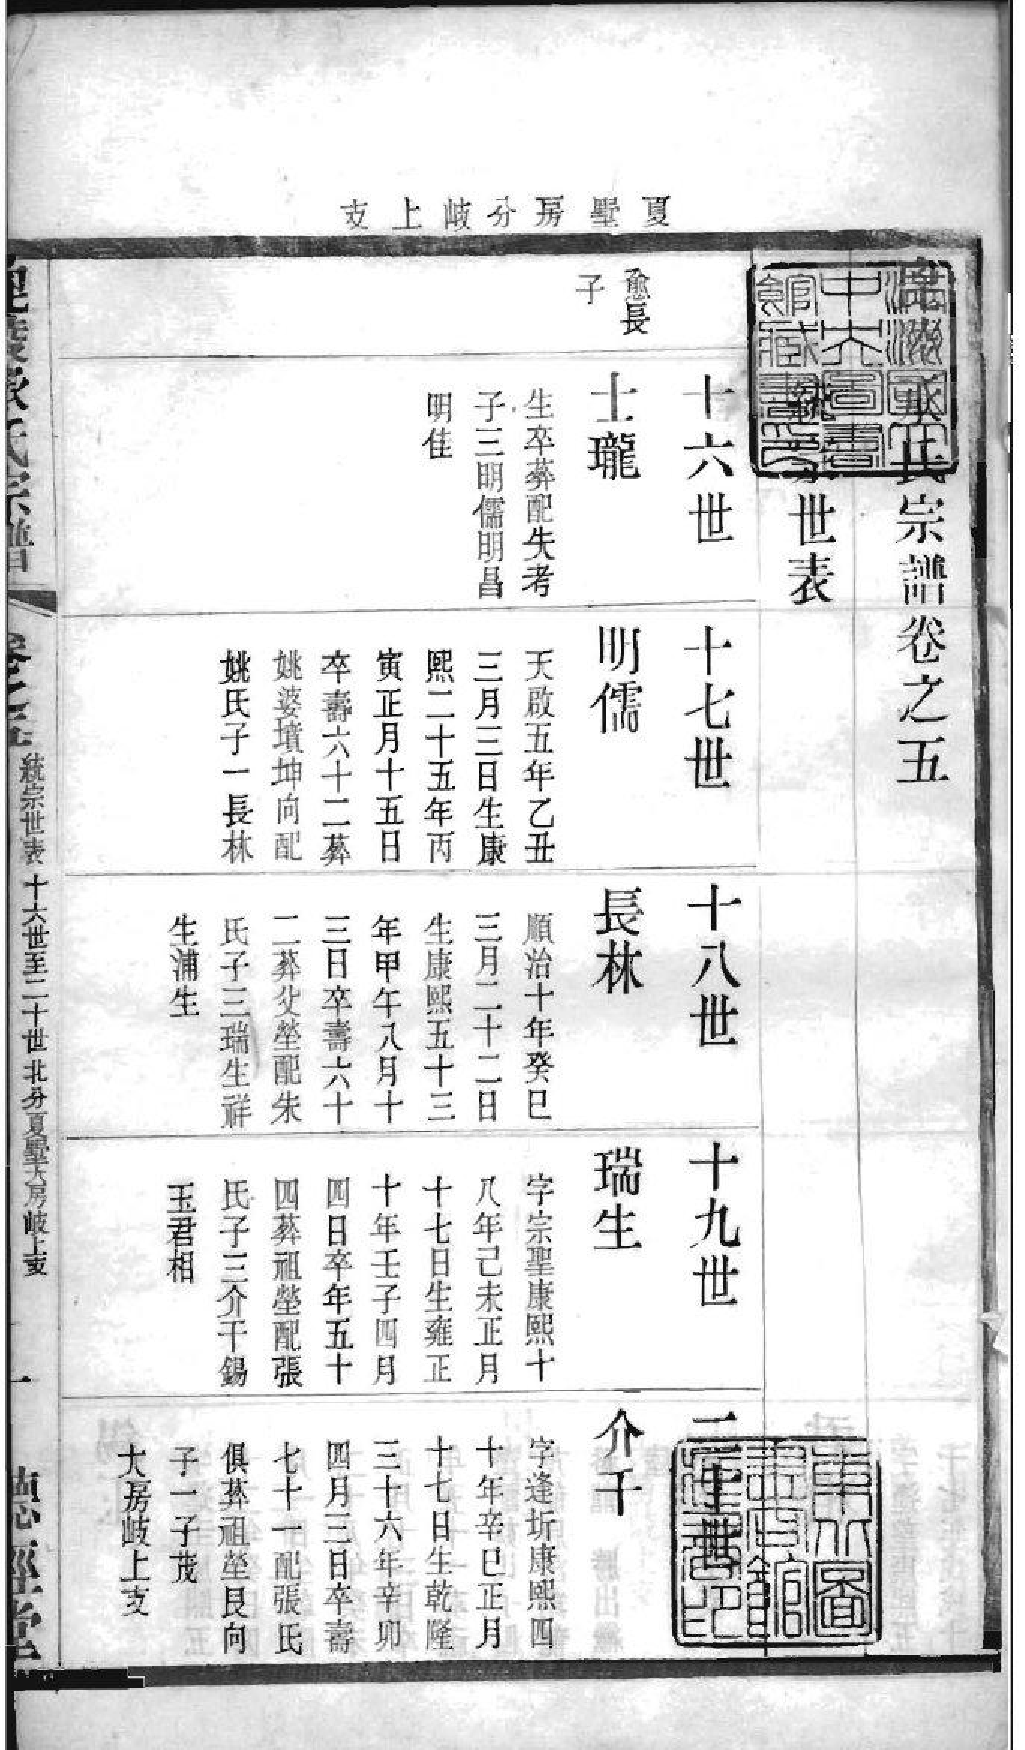 夏墅房分岐上支
承氏宗譜卷之五
統宗世表
愈長
子
十六世
士瓏
生卒葬配失考
子三明儒明昌
明佳
十七世
明儒
天啟五年乙丑
三月三日生康
熙二十五年丙
寅正月十五日
卒壽六十二葬
姚婆墳坤向配
姚氏子一長林
十八世
長林
順治十年癸巳
三月二十二日
生康熙五十三
年甲午八月十
三日卒壽六十
二葬父塋配朱
氏子三瑞生祥
生浦生
十九世
瑞生
字宗聖康熙十
八年己未正月
十七日生雍正
十年壬子四月
四日卒年五十
四葬祖塋配張
氏子三介千錫
玉君相
二十世
介千
字逢圻康熙四
十年辛巳正月
十七日生乾隆
三十六年辛卯
四月三日卒壽
七十一配張氏
俱葬祖塋艮向
子一子茂
大房岐上支
毘陵承氏宗譜
卷之五
統宗世表
十六世至二十世北分夏墅大房岐上支
一
德經堂